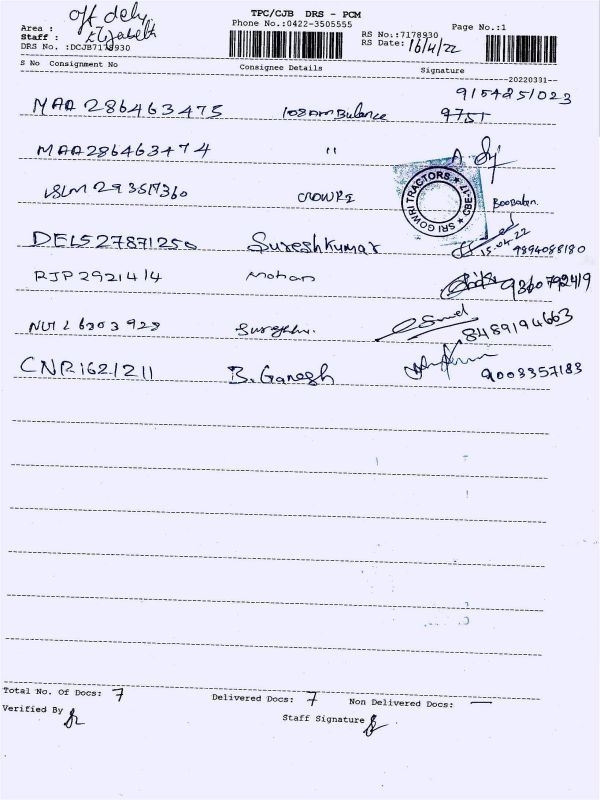 TPC/CJB DRS - PCM
Area : off dely
Phone No.:0422-3505555
Page No.:1
Staff : Elizabeth
RS No.:7178930
DRS No. :DCJB7178930
RS Date: 16/4/22
S No Consignment No Consignee Details Signature
20220331
9154251023
MAA 286463475 108 AmBulance 9751
MAA286463474 "
SRI GOWRI TRACTORS ★ CBE-17 ★
CROWRI
Boobalan.
15.04.22
DEL527871250 Sureshkumar 9894088180
RJP2921414 Mohan 9360792419
8489194663
CNR1621211 B. Ganesh 9003357183
Total No. Of Docs: 7 Delivered Docs: 7 Non Delivered Docs: —
Verified By
Staff Signature